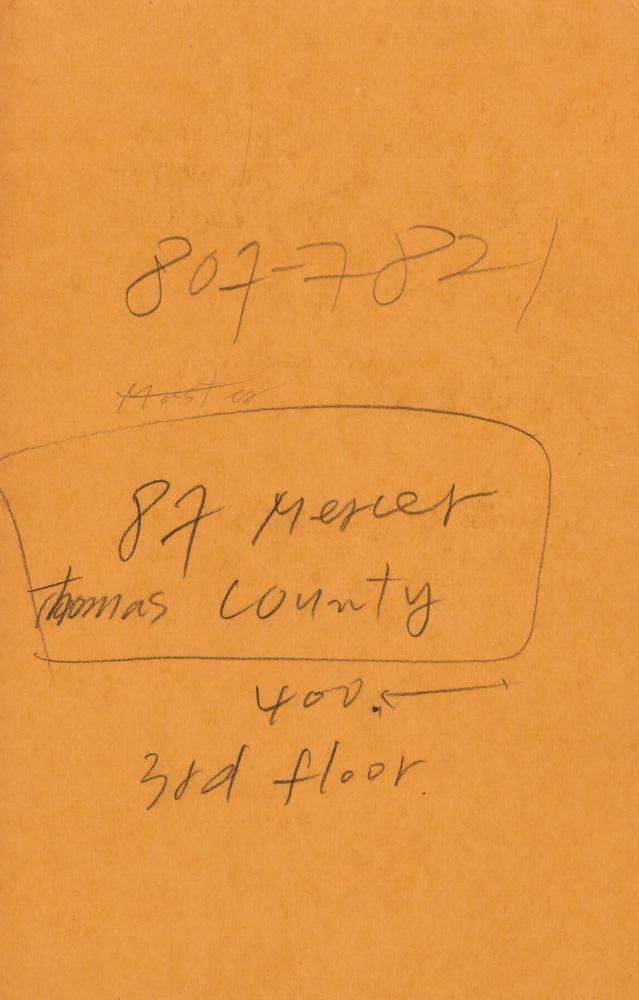 807-7821
Master
87 Mercer
Thomas County
400.
3rd floor.